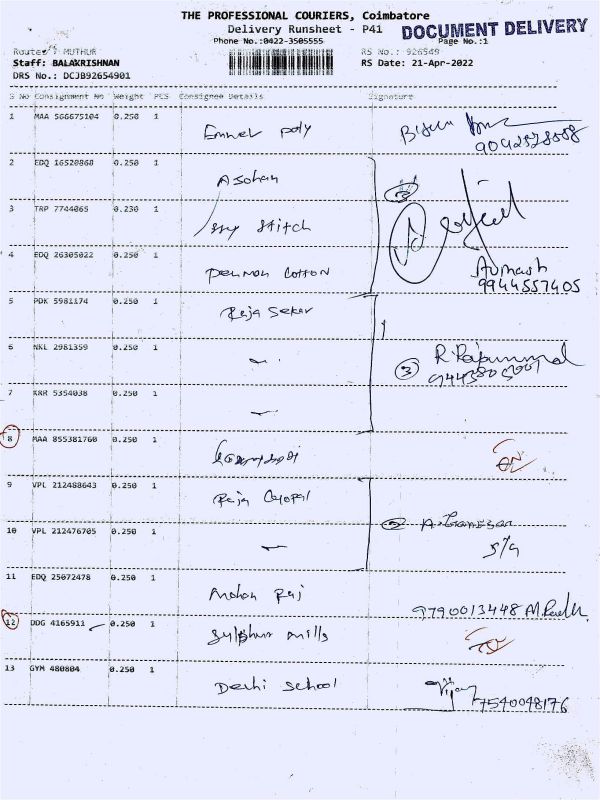 THE PROFESSIONAL COURIERS, Coimbatore
Delivery Runsheet - P41
DOCUMENT DELIVERY
Phone No.:0422-3505555
Page No.:1
Route: MUTHUR
RS No.: 926549
Staff: BALAKRISHNAN
RS Date: 21-Apr-2022
DRS No.: DCJB92654901
S No Consignment No Weight PCS Consignee Details Signature
1 MAA 566675104 0.250 1 Emmel poly
2 EDQ 16520860 0.250 1 Asohan
3 TRP 7744065 0.230 1 Sky Stitch
4 EDQ 26305022 0.250 1 Penmon Cotton
9944557405
5 PDK 5981174 0.250 1 Raja Sekar
6 NKL 2981359 0.250 1 3
7 KRR 5354038 0.250 1
8 MAA 855381760 0.250 1
9 VPL 212488643 0.250 1 Raja Gopal
10 VPL 212476705 0.250 1
11 EDQ 25072478 0.250 1 Mohan Raj 9790013448
12 DDG 4165911 0.250 1 Sulphur mills
13 GYM 480804 0.250 1 Delhi School Vijay
7540048176